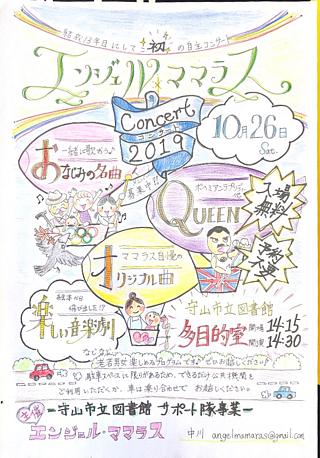 結成13年目にして初の自主コンサート
エンジェル・ママラス
Concert
コンサート
2019
10月26日
Sat.
一緒に歌おう♪
おなじみの名曲
募集中!!
ボヘミアンラプソディ
QUEEN
入場無料
予約不要
ママラス自慢の
オリジナル曲
絵本が飛び出した!?
楽しい音楽劇
守山市立図書館
多目的室
開場 14:15
開演 14:30
老若男女 楽しめるプログラムです♪ぜひお越しください♪
駐車スペースに限りがあるため、できるだけ公共機関を
ご利用いただくか、車は乗り合わせてお越しください。
主催
-守山市立図書館 サポート隊事業-
エンジェル・ママラス
中川 angelmamaras@gmail.com